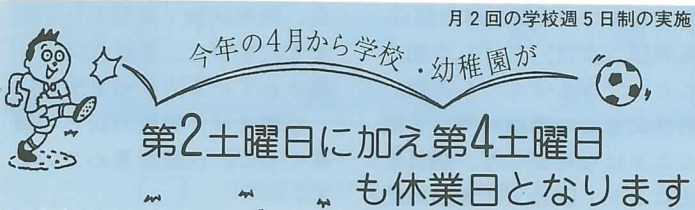 月2回の学校週5日制の実施
今年の4月から学校・幼稚園が
第2土曜日に加え第4土曜日
も休業日となります